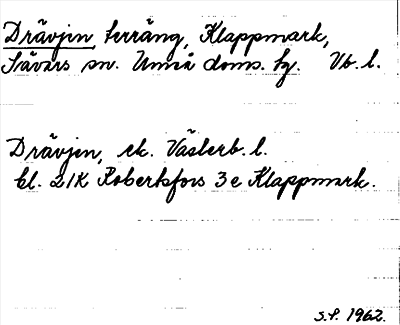 Drävjen, terräng, Klappmark,
Sävars sn. Umeå doms. hg. Vb. l.
Drävjen, ek. Västerb. l.
bl. 21K Robertsfors 3e Klappmark.
S.P. 1962.